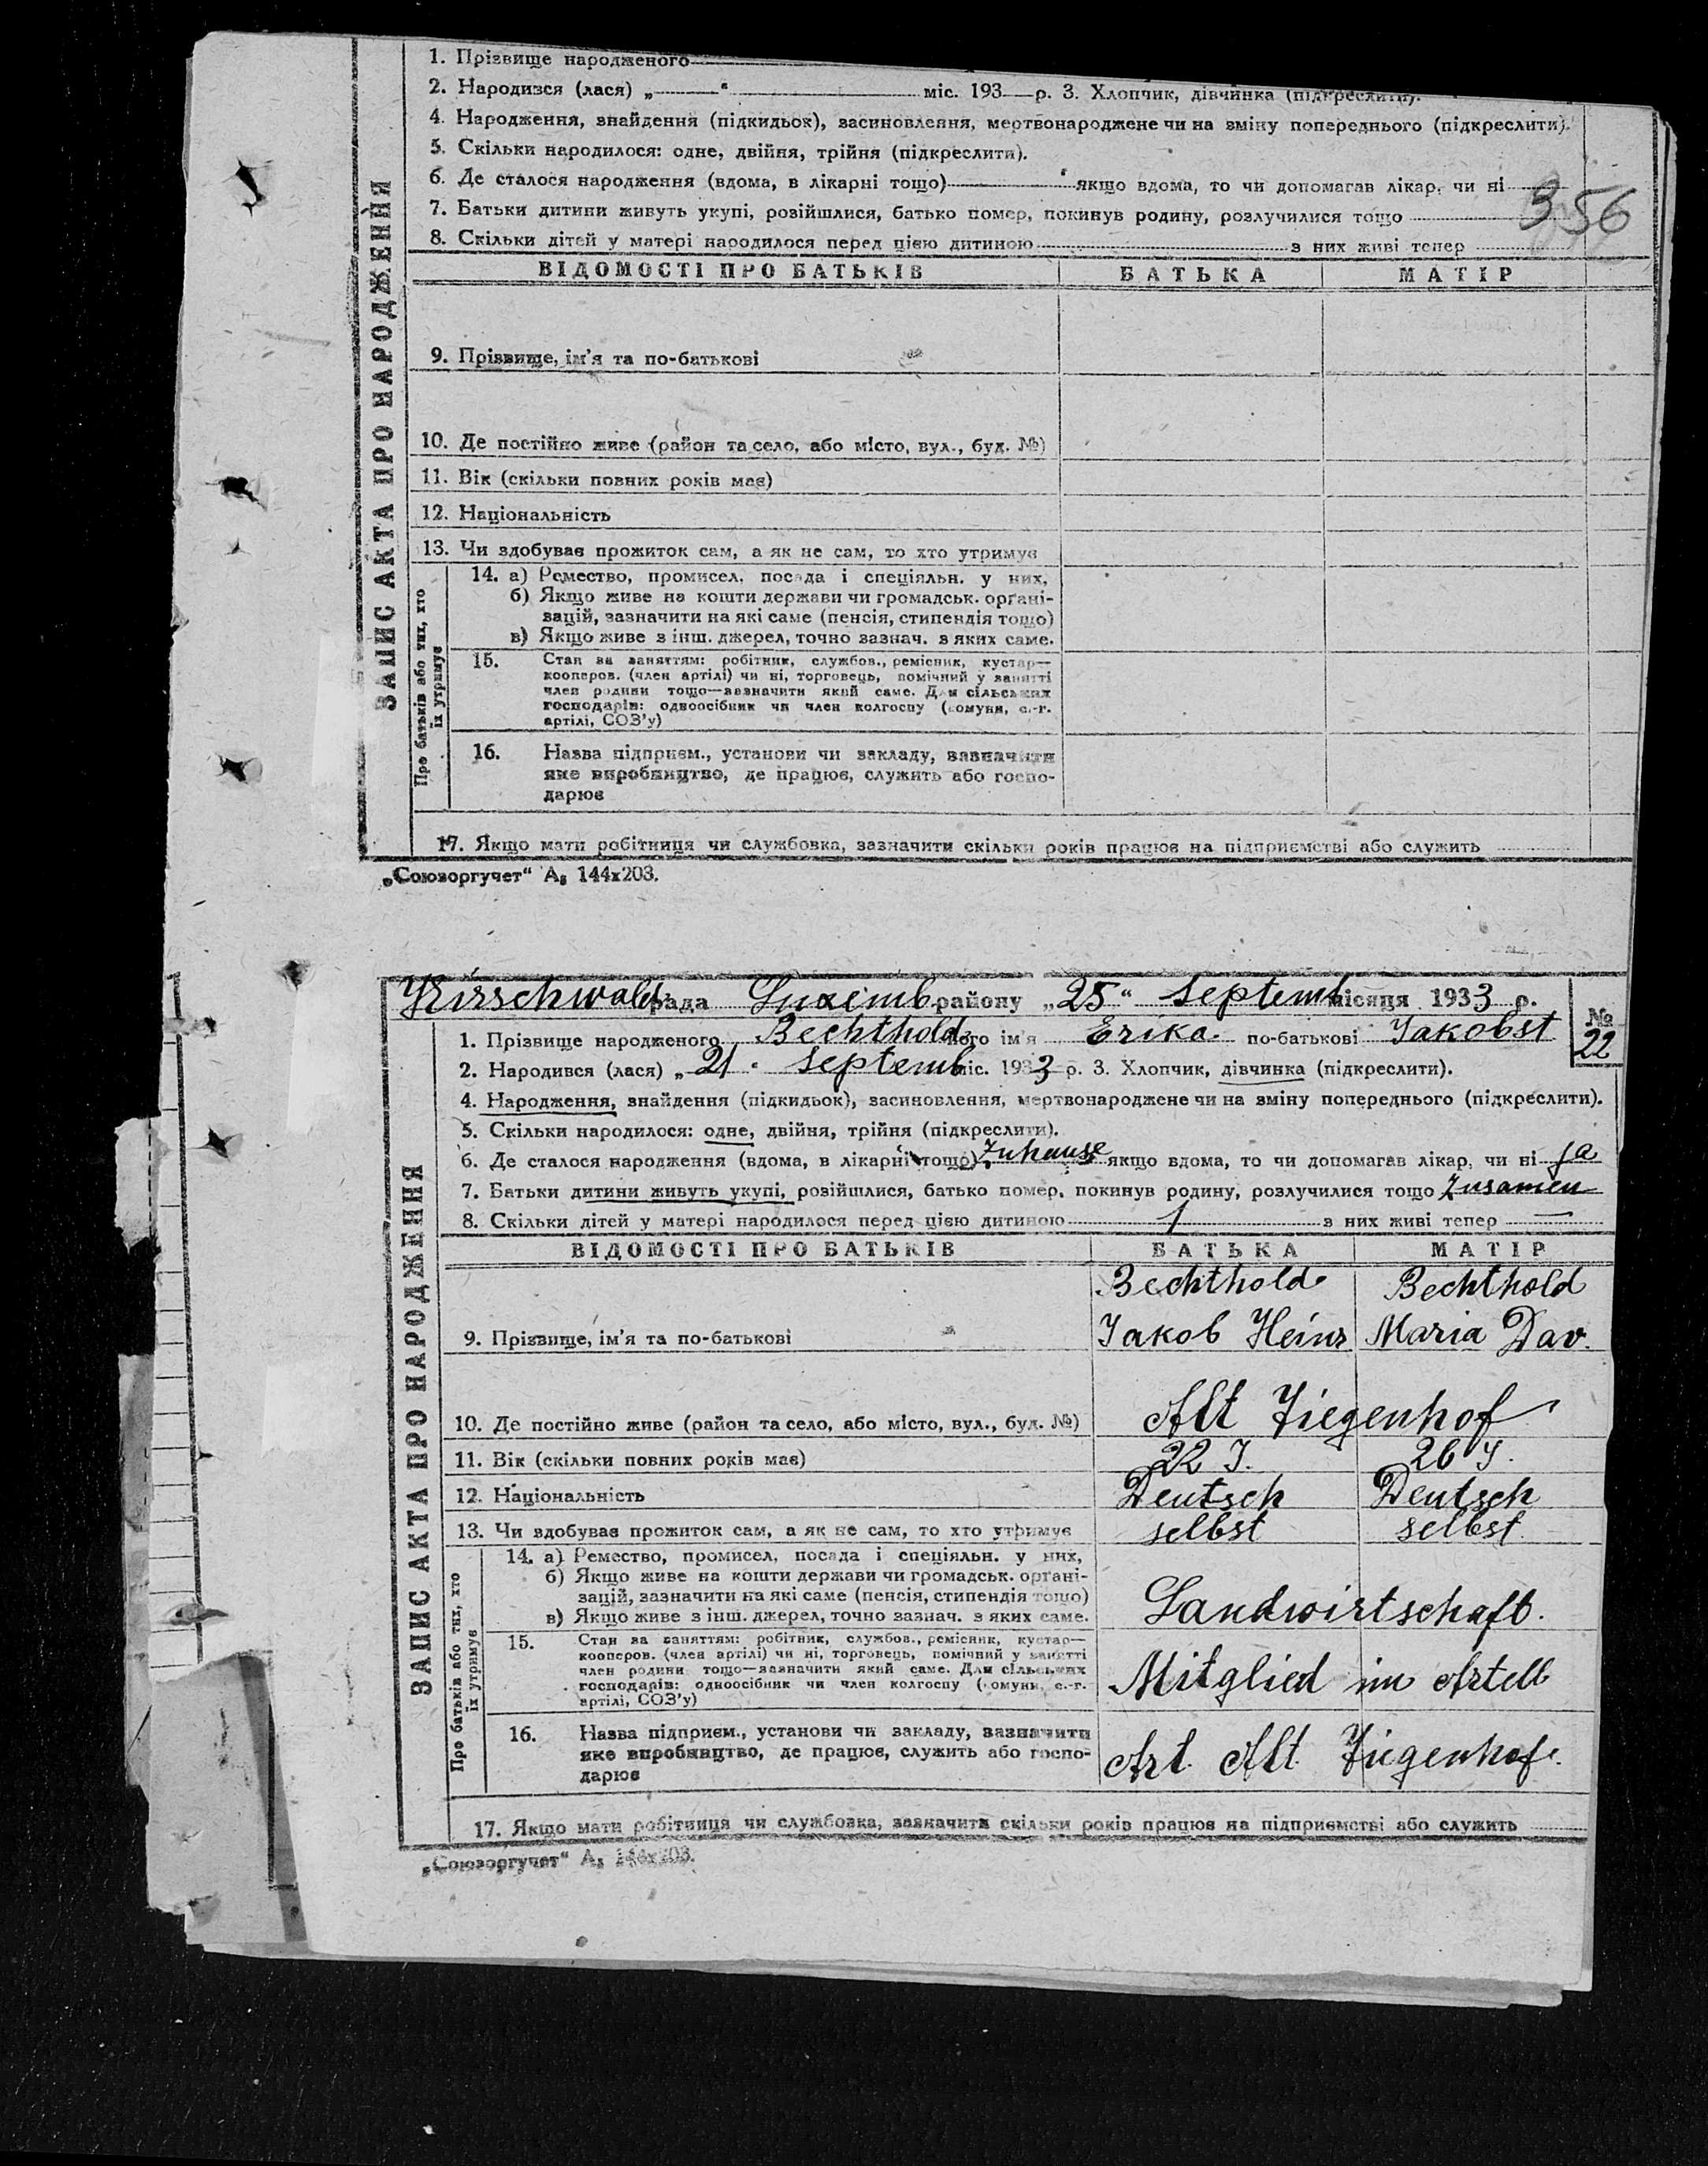 ЗАПИС АКТА ПРО НАРОДЖЕННЯ
1. Прізвище народженого
2. Народився (лася) „ “ міс. 193 р. 3. Хлопчик, дівчинка (підкреслити).
4. Народження, знайдення (підкидьок), засиновлення, мертвонароджене чи на зміну попереднього (підкреслити).
5. Скільки народилося: одне, двійня, трійня (підкреслити).
6. Де сталося народження (вдома, в лікарні тощо) якщо вдома, то чи допомагав лікар, чи ні
356
7. Батьки дитини живуть укупі, розійшлися, батько помер, покинув родину, розлучилися тощо
8. Скільки дітей у матері народилося перед цією дитиною з них живі тепер
ВІДОМОСТІ ПРО БАТЬКІВ БАТЬКА МАТІР
9. Прізвище, ім'я та по-батькові
10. Де постійно живе (район та село, або місто, вул., буд. №)
11. Вік (скільки повних років має)
12. Національність
13. Чи здобуває прожиток сам, а як не сам, то хто утримує
Про батьків або тих, хто їх утримує
14. а) Ремество, промисел, посада і спеціяльн. у них,
б) Якщо живе на кошти держави чи громадськ. органі-
зацій, зазначити на які саме (пенсія, стипендія тощо)
в) Якщо живе з інш. джерел, точно зазнач. з яких саме.
15. Стан за заняттям: робітник, службов., ремісник, кустар—
кооперов. (член артілі) чи ні, торговець, помічний у занятті
член родини тощо—зазначити який саме. Для сільських
господарів: одноосібник чи член колгоспу (комуни, с.-г.
артілі, СОЗ'у)
16. Назва підприєм., установи чи закладу, зазначити
яке виробництво, де працює, служить або госпо-
дарює
17. Якщо мати робітниця чи службовка, зазначити скільки років працює на підприємстві або служить
„Союзоргучет“ А₅ 144х203.
ЗАПИС АКТА ПРО НАРОДЖЕННЯ
Kirschwald рада Luxemb району „25“ Septemb місяця 1933 р.
№ 22
1. Прізвище народженого Bechthold його ім'я Erika по-батькові Jakobst
2. Народився (лася) „21“ Septemb міс. 1933 р. 3. Хлопчик, дівчинка (підкреслити).
4. Народження, знайдення (підкидьок), засиновлення, мертвонароджене чи на зміну попереднього (підкреслити).
5. Скільки народилося: одне, двійня, трійня (підкреслити).
6. Де сталося народження (вдома, в лікарні тощо) Zuhause якщо вдома, то чи допомагав лікар, чи ні ja
7. Батьки дитини живуть укупі, розійшлися, батько помер, покинув родину, розлучилися тощо Zusamen
8. Скільки дітей у матері народилося перед цією дитиною 1 з них живі тепер —
ВІДОМОСТІ ПРО БАТЬКІВ БАТЬКА МАТІР
Bechthold Bechthold
9. Прізвище, ім'я та по-батькові Jakob Heinr Maria Dav.
10. Де постійно живе (район та село, або місто, вул., буд. №) Alt Ziegenhof
11. Вік (скільки повних років має) 22 J. 26 J.
12. Національність Deutsch Deutsch
13. Чи здобуває прожиток сам, а як не сам, то хто утримує selbst selbst
Про батьків або тих, хто їх утримує
14. а) Ремество, промисел, посада і спеціяльн. у них,
б) Якщо живе на кошти держави чи громадськ. органі-
зацій, зазначити на які саме (пенсія, стипендія тощо)
в) Якщо живе з інш. джерел, точно зазнач. з яких саме.
Landwirtschaft.
15. Стан за заняттям: робітник, службов., ремісник, кустар—
кооперов. (член артілі) чи ні, торговець, помічний у занятті
член родини тощо—зазначити який саме. Для сільських
господарів: одноосібник чи член колгоспу (комуни, с.-г.
артілі, СОЗ'у)
Mitglied im Artell
16. Назва підприєм., установи чи закладу, зазначити
яке виробництво, де працює, служить або госпо-
дарює
Art. Alt. Ziegenhof.
17. Якщо мати робітниця чи службовка, зазначити скільки років працює на підприємстві або служить
„Союзоргучет“ А₅ 144х203.